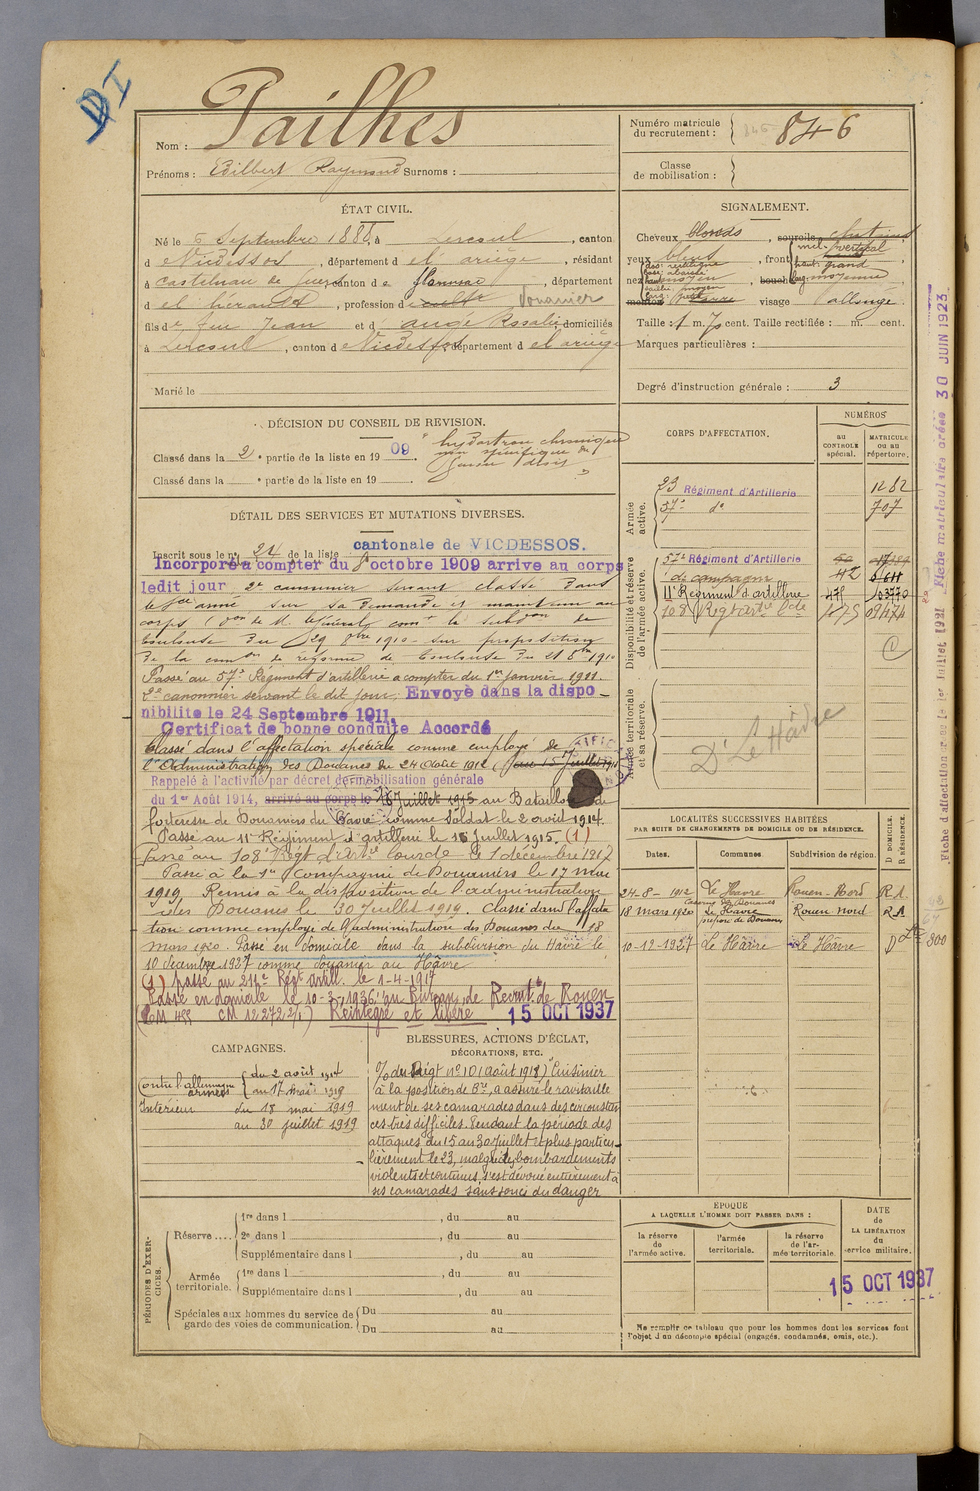 DI
Nom : Pailhès
Prénoms : Edilbert Raymond Surnoms :
Numéro matricule
du recrutement : 846
Classe
de mobilisation :
ÉTAT CIVIL.
Né le 5 Septembre 1888, à Lercoul, canton
d Vicdessos, département d el ariège, résidant
à Castelnau de Guers canton d e Florensac, département
d el hérault, profession d Douanier
fils d e feu Jean et d Augé Rosalie domiciliés
à Lercoul, canton d e Vicdessos, département d el ariège
Marié le
SIGNALEMENT.
Cheveux blonds, sourcils châtains
yeux bleus, front
incl. vertical
haut. grand
larg. moyenne
nez
dos: rectiligne
base: abaissée
haut moyen
saillie moyen
larg: petit
bouche
menton visage allongé.
Taille : 1 m. 70 cent. Taille rectifiée : m. cent.
Marques particulières :
Degré d'instruction générale : 3
DÉCISION DU CONSEIL DE REVISION.
Classé dans la 2e partie de la liste en 1909. "hydartrose chronique
non spécifique du
genou droit"
Classé dans la e partie de la liste en 19
DÉTAIL DES SERVICES ET MUTATIONS DIVERSES.
Inscrit sous le n° 24 de la liste cantonale de VICDESSOS.
Incorporé à compter du 8 octobre 1909 arrive au corps
ledit jour 2e canonnier servant classé dans
le Sce armé sur sa demande et maintenu au
corps (Don de M. le Général comt la subdon de
Toulouse du 29 8bre 1910 sur proposition
de la comon de réforme de Toulouse du
Passé au 57e Régiment d'artillerie à compter du 1er Janvier 1911.
2e canonnier servant le dit jour. Envoyé dans la dispo-
nibilité le 24 Septembre 1911.
Certificat de bonne conduite Accordé
Classé dans l'affectation spéciale comme employé de
l'Administration des Douanes du 24 Août 1912
Rappelé à l'activité par décret de mobilisation générale
du 1er Août 1914, arrivé au corps le 16 Juillet 1915 au Bataillon de
forteresse de Douaniers du Havre comme soldat le 2 août 1914.
Passé au 11e Régiment d'artillerie le 16 Juillet 1915. (1)
Passé au 108e Régt d'Artie lourde le 1 décembre 1917
Passé à la 1re Compagnie de Douaniers le 17 mai
1919 Remis à la disposition de l'administration
des Douanes le 30 Juillet 1919. Classé dans l'affecta-
tion comme employé de l'administration des Douanes du 18
mars 1920. Passé en domicile dans la subdivision du Havre le
10 décembre 1927 comme douanier au Hâvre
(1) passé au 211e Régt artill. le 1-4-1917
Passé en domicile le 10-3-1936 au Bureau de Recrutt de Rouen
(CM 455 CM 12272 2/1) Réintégré et libéré 15 OCT 1937
CORPS D'AFFECTATION.
NUMÉROS
au
CONTROLE
spécial.
MATRICULE
ou au
répertoire.
Armée
active.
23 Régiment d'Artillerie 1282
57e do 707
Disponibilité et réserve
de l'armée active.
57e Régiment d'Artillerie
de campagne 42
11e Régiment d'artillerie 475 03770
108 Regt artie lde 1475
Armée territoriale
et sa réserve.
Dt Le Hâvre
LOCALITÉS SUCCESSIVES HABITÉES
PAR SUITE DE CHANGEMENTS DE DOMICILE OU DE RÉSIDENCE.
Dates. Communes. Subdivision de région. D DOMICILE. R RÉSIDENCE.
24-8-1912 Le Havre Rouen-Nord R A.
Caserne des Douanes
18 mars 1920 Le Havre Rouen Nord R A
préposé des Douanes
10-12-1927 Le Hâvre Le Hâvre D
CAMPAGNES.
Contre l'allemagne du 2 août 1914
armées au 17 mai 1919
Intérieur du 18 mai 1919
au 30 juillet 1919
BLESSURES, ACTIONS D'ÉCLAT,
DÉCORATIONS, ETC.
O/o du Régt n° 10 (août 1918) Cuisinier
à la position de Bie, a assuré le ravitaille
ment de ses camarades dans des circonstan
ces très difficiles. Pendant la période des
attaques du 15 au 30 Juillet et plus particu-
lièrement le 23, malgré des bombardements
violents et continus, s'est dévoué entièrement à
ses camarades sans souci du danger
PÉRIODES D'EXER-
CICES.
Réserve....
1re dans l , du au
2e dans l , du au
Supplémentaire dans l , du au
Armée
territoriale.
1re dans l , du au
Supplémentaire dans l , du au
Spéciales aux hommes du service de
garde des voies de communication.
Du au
Du au
ÉPOQUE
A LAQUELLE L'HOMME DOIT PASSER DANS :
la réserve
de
l'armée active.
l'armée
territoriale.
la réserve
de l'ar-
mée territoriale.
DATE
de
LA LIBÉRATION
du
service militaire.
15 OCT 1937
Ne remplir ce tableau que pour les hommes dont les services font
l'objet d'un décompte spécial (engagés, condamnés, omis, etc.).
Fiche d'affectation créée le 1er Juillet 1921 Fiche matriculaire créée 30 JUIN 1923